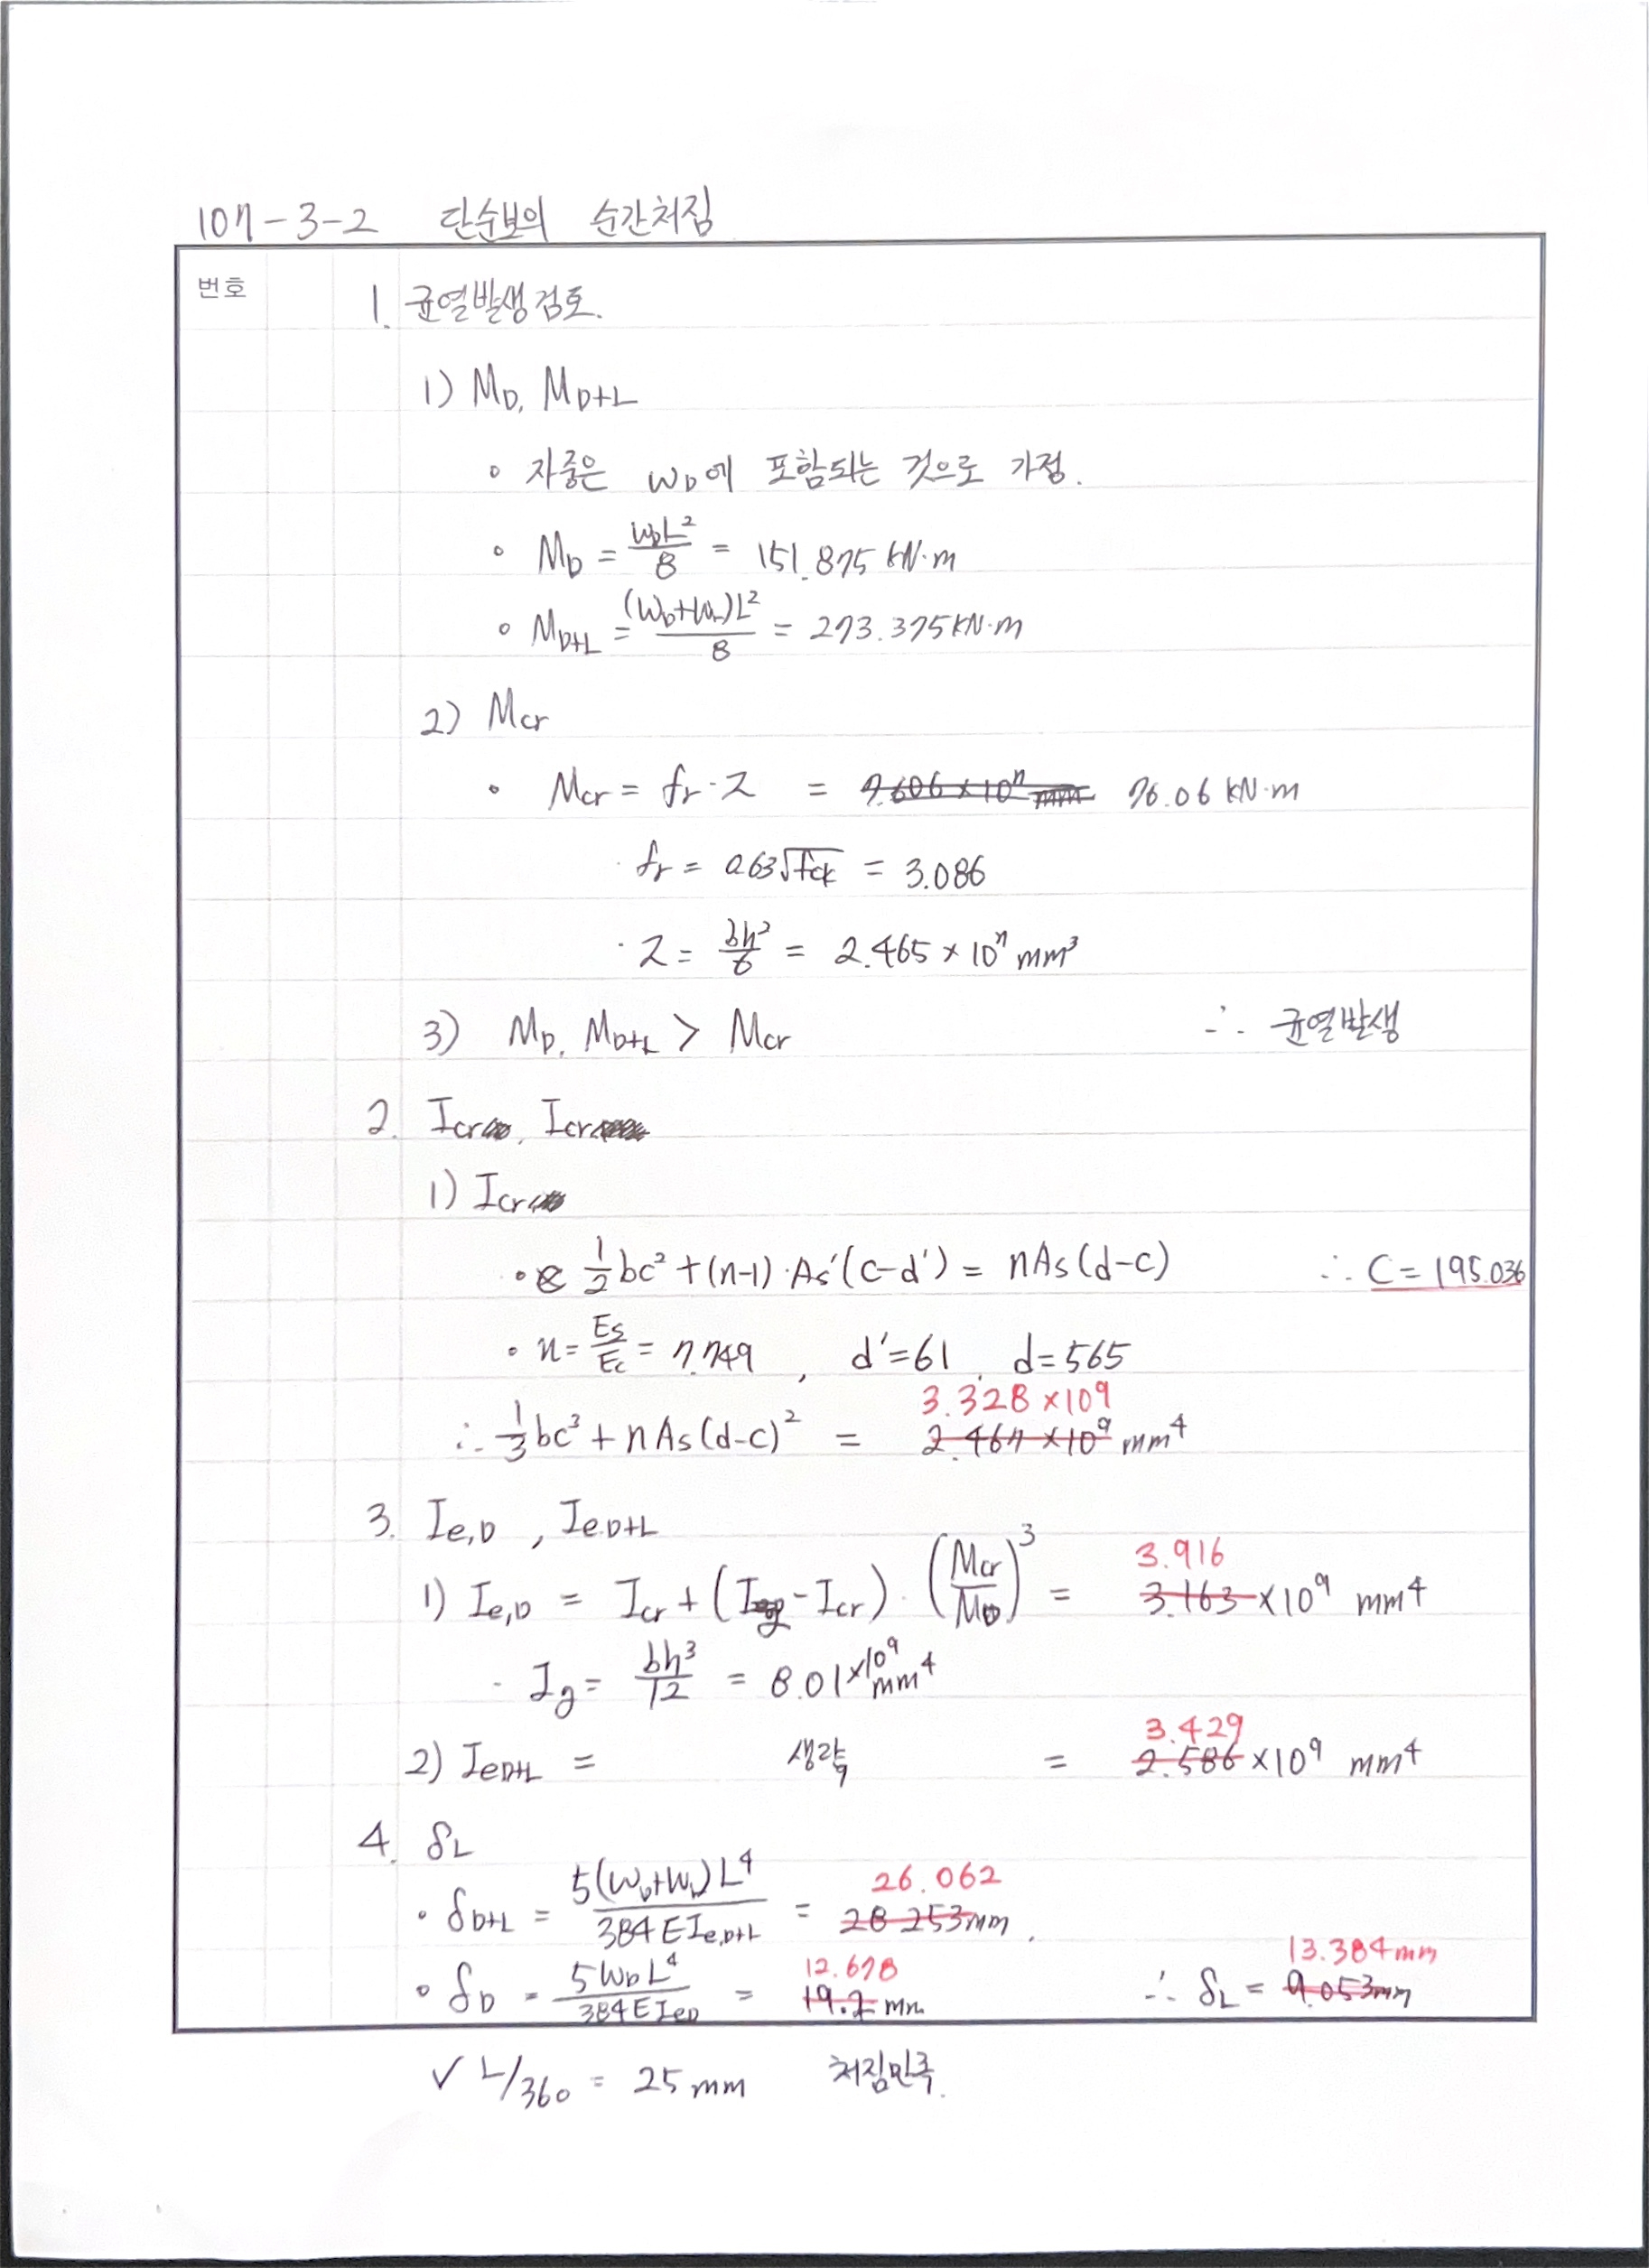 107-3-2 단순보의 순간처짐
번호
1. 균열발생검토.
1) MD, MD+L
• 자중은 wD에 포함되는 것으로 가정.
• MD = wDL²/8 = 151.875 kN·m
• MD+L = (wD+wL)L²/8 = 273.375 kN·m
2) Mcr
• Mcr = fr·Z = 7.606×10⁷ mm 76.06 kN·m
· fr = 0.63√fck = 3.086
· Z = bh²/6 = 2.465×10⁷ mm³
3) MD, MD+L > Mcr ∴ 균열발생
2. Icr, Icr
1) Icr
• 1/2bc²+(n-1)·As'(c-d') = nAs(d-c) ∴ C=195.036
• n = Es/Ec = 7.749, d'=61, d=565
3.328×10⁹
∴ 1/3bc³+nAs(d-c)² = 2.467×10⁹ mm⁴
3. Ie,D, Ie.D+L
3.916
1) Ie,D = Icr+(Ig-Icr)·(Mcr/MD)³ = 3.163×10⁹ mm⁴
· Ig = bh³/12 = 8.01×10⁹ mm⁴
3.429
2) IeD+L = 생략 = 2.586×10⁹ mm⁴
4. δL
26.062
• δD+L = 5(wD+wL)L⁴/384EIe,D+L = 28.253mm.
12.678 13.384mm
• δD = 5wDL⁴/384EIeD = 19.2 mm ∴ δL = 9.053mm
✓ L/360 = 25mm 처짐만족.